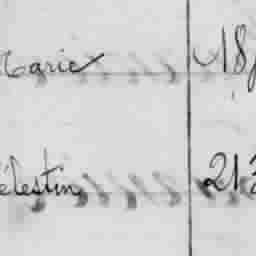 Marie 18
élestin 213